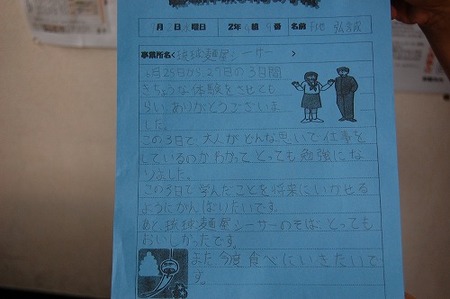 月 日 曜日 2年 組 番 名前
事業所名<琉球麺屋シーサー >
月25日から27日の3日間
きちょうな体験をさせても
らいありがとうございま
した。
この3日で、大人がどんな思いで仕事を
しているのかわかってとっても勉強にな
りました。
この3日で学んだことを将来にいかせる
ようにがんばりたいです。
あと、琉球麺屋シーサーのそば、とっても
おいしかったです。
また今度食べにいきたいで
す。